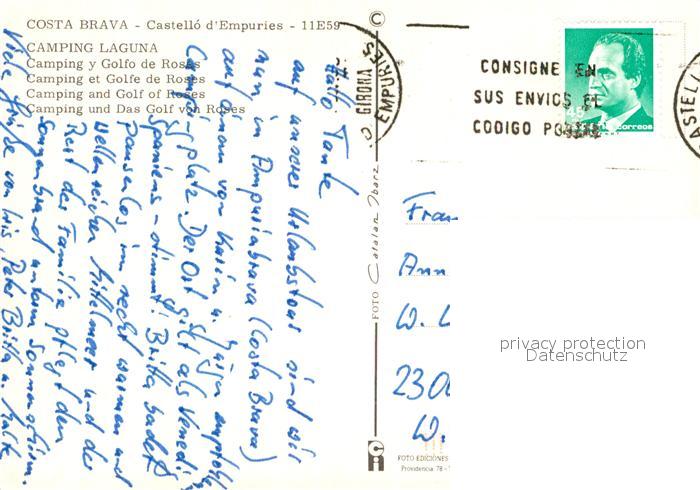 COSTA BRAVA - Castelló d'Empuries - 11E59
CAMPING LAGUNA
Camping y Golfo de Roses
Camping et Golfe de Roses
Camping and Golf of Roses
Camping und Das Golf von Roses
Hallo Tante
auf unserer Urlaubstour sind wir
nun in Ampuriabrava (Costa Brava)
auf einem von Karin u. empfohl.
platz. Der Ort gilt als Venedig
Spaniens - stimmt! Britta badet
pausenlos im recht warmen und
wellenreichen Mittelmeer und der
Rest der Familie pflegt den
Sonnenbrand unterm Sonnenschirm.
Viele Grüße von Iris, Peter Britta u. Maik
©
GIRONA
EMPURIES
CONSIGNE EN
SUS ENVIOS EL
CODIGO POSTAL
CASTELL
correos
FOTO Catalan Ibarz
Fra
Ann
W. L
2300
W.
privacy protection
Datenschutz
FOTO EDICIONES
Providencia, 78 -